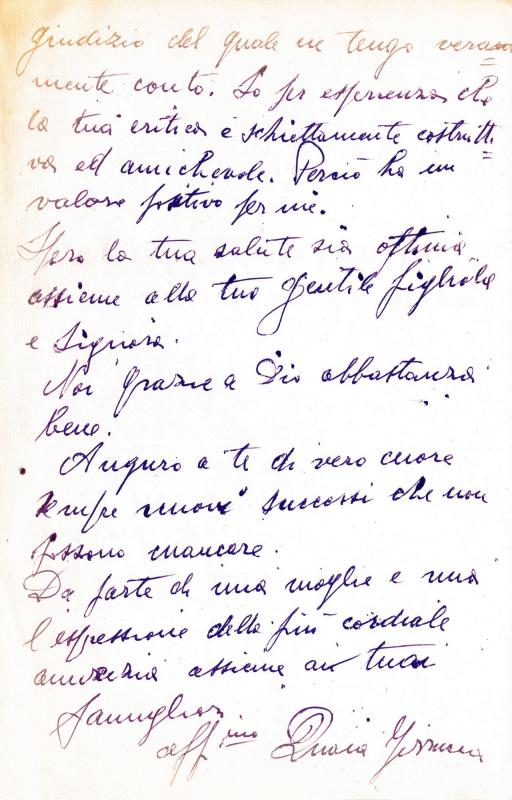 giudizio del quale ne tengo vera=
mente conto. So per esperienza che
la tua critica è schiettamente costrutti=
va ed amichevole. Perciò ha un
valore positivo per me.
Spero la tua salute sia ottima
assieme alla tua gentile figliola
e Signora.
Noi grazie a Dio abbastanza
bene.
Auguro a te di vero cuore
sempre nuovi successi che non
possono mancare.
Da parte di mia moglie e mia
l'espressione della più cordiale
amicizia assieme ai tuoi
famigliari
aff.mo